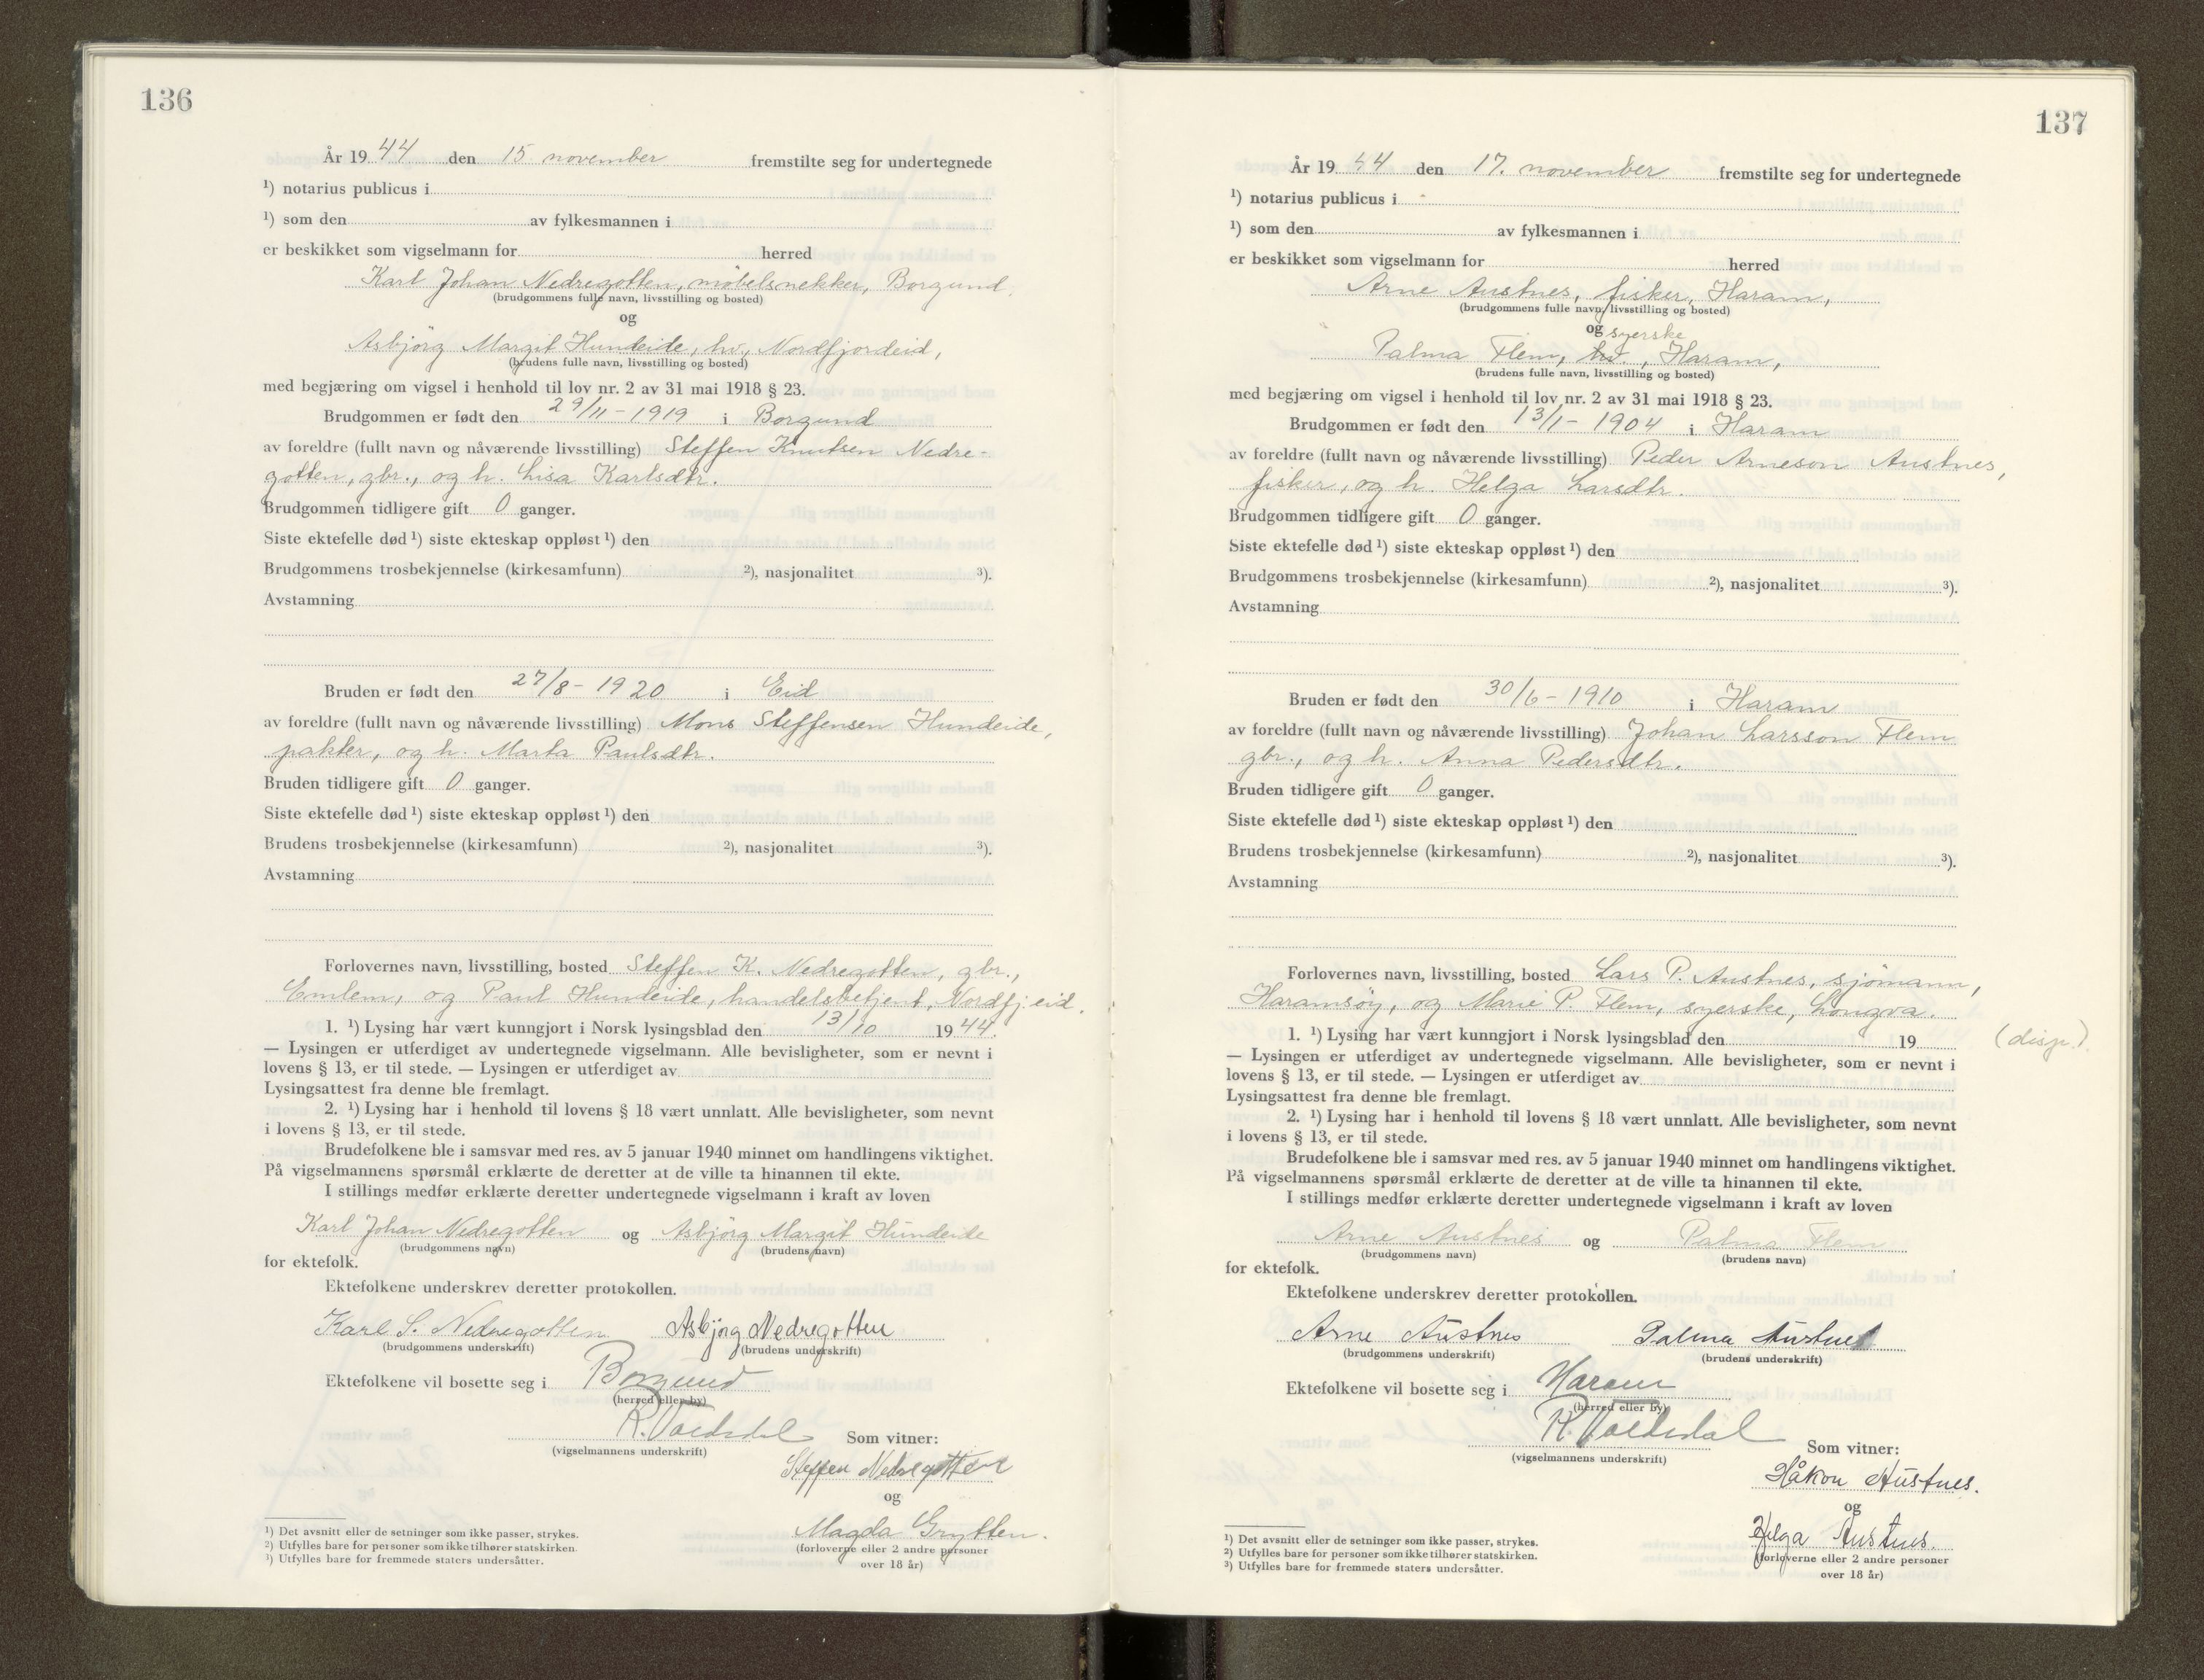 136
År 19 44 den 15. november fremstilte seg for undertegnede
¹) notarius publicus i
¹) som den av fylkesmannen i
er beskikket som vigselmann for herred
Karl Johan Nedregotten, møbelsnekker, Borgund.
(brudgommens fulle navn, livsstilling og bosted)
og
Asbjörg Margit Hundeide, hv., Nordfjordeid,
(brudens fulle navn, livsstilling og bosted)
med begjæring om vigsel i henhold til lov nr. 2 av 31 mai 1918 § 23.
Brudgommen er født den 29/11-1919 i Borgund
av foreldre (fullt navn og nåværende livsstilling) Steffen Knutsen Nedre-
gotten, gbr., og h. Lisa Karlsdtr.
Brudgommen tidligere gift 0 ganger.
Siste ektefelle død ¹) siste ekteskap oppløst ¹) den
Brudgommens trosbekjennelse (kirkesamfunn) ²), nasjonalitet ³).
Avstamning
Bruden er født den 27/8-1920 i Eid
av foreldre (fullt navn og nåværende livsstilling) Mons Steffensen Hundeide,
pakter, og h. Marta Paulsdtr.
Bruden tidligere gift 0 ganger.
Siste ektefelle død ¹) siste ekteskap oppløst ¹) den
Brudens trosbekjennelse (kirkesamfunn) ²), nasjonalitet ³).
Avstamning
Forlovernes navn, livsstilling, bosted Steffen K. Nedregotten, gbr.,
Emlem, og Paul Hundeide, handelsbetjent, Nordfj.eid.
1. ¹) Lysing har vært kunngjort i Norsk lysingsblad den 13/10 19 44.
— Lysingen er utferdiget av undertegnede vigselmann. Alle bevisligheter, som er nevnt i
lovens § 13, er til stede. — Lysingen er utferdiget av
Lysingsattest fra denne ble fremlagt.
2. ¹) Lysing har i henhold til lovens § 18 vært unnlatt. Alle bevisligheter, som nevnt
i lovens § 13, er til stede.
Brudefolkene ble i samsvar med res. av 5 januar 1940 minnet om handlingens viktighet.
På vigselmannens spørsmål erklærte de deretter at de ville ta hinannen til ekte.
I stillings medfør erklærte deretter undertegnede vigselmann i kraft av loven
Karl Johan Nedregotten og Asbjörg Margit Hundeide
(brudgommens navn) (brudens navn)
for ektefolk.
Ektefolkene underskrev deretter protokollen.
Karl S. Nedregotten Asbjørg Nedregotten
(brudgommens underskrift) (brudens underskrift)
Ektefolkene vil bosette seg i Borgund
(herred eller by)
R. Voldsdal Som vitner:
(vigselmannens underskrift)
Steffen Nedregotten
og
Magda Grytten.
(forloverne eller 2 andre personer
over 18 år)
¹) Det avsnitt eller de setninger som ikke passer, strykes.
²) Utfylles bare for personer som ikke tilhører statskirken.
³) Utfylles bare for fremmede staters undersåtter.
137
År 19 44 den 17. november fremstilte seg for undertegnede
¹) notarius publicus i
¹) som den av fylkesmannen i
er beskikket som vigselmann for herred
Arne Austnes, fisker, Haram,
(brudgommens fulle navn, livsstilling og bosted)
og syerske
Palma Flem, hv., Haram,
(brudens fulle navn, livsstilling og bosted)
med begjæring om vigsel i henhold til lov nr. 2 av 31 mai 1918 § 23.
Brudgommen er født den 13/1-1904 i Haram
av foreldre (fullt navn og nåværende livsstilling) Peder Arneson Austnes,
fisker, og h. Helga Larsdtr.
Brudgommen tidligere gift 0 ganger.
Siste ektefelle død ¹) siste ekteskap oppløst ¹) den
Brudgommens trosbekjennelse (kirkesamfunn) ²), nasjonalitet ³).
Avstamning
Bruden er født den 30/6-1910 i Haram
av foreldre (fullt navn og nåværende livsstilling) Johan Larsson Flem
gbr., og h. Anna Pedersdtr.
Bruden tidligere gift 0 ganger.
Siste ektefelle død ¹) siste ekteskap oppløst ¹) den
Brudens trosbekjennelse (kirkesamfunn) ²), nasjonalitet ³).
Avstamning
Forlovernes navn, livsstilling, bosted Lars P. Austnes, sjömann,
Haramsöy, og Marie P. Flem, syerske, Longva.
1. ¹) Lysing har vært kunngjort i Norsk lysingsblad den 19 (disp.)
— Lysingen er utferdiget av undertegnede vigselmann. Alle bevisligheter, som er nevnt i
lovens § 13, er til stede. — Lysingen er utferdiget av
Lysingsattest fra denne ble fremlagt.
2. ¹) Lysing har i henhold til lovens § 18 vært unnlatt. Alle bevisligheter, som nevnt
i lovens § 13, er til stede.
Brudefolkene ble i samsvar med res. av 5 januar 1940 minnet om handlingens viktighet.
På vigselmannens spørsmål erklærte de deretter at de ville ta hinannen til ekte.
I stillings medfør erklærte deretter undertegnede vigselmann i kraft av loven
Arne Austnes og Palma Flem
(brudgommens navn) (brudens navn)
for ektefolk.
Ektefolkene underskrev deretter protokollen.
Arne Austnes Palma Austnes
(brudgommens underskrift) (brudens underskrift)
Ektefolkene vil bosette seg i Haram
(herred eller by)
R. Voldsdal Som vitner:
(vigselmannens underskrift)
Håkon Austnes.
og
Helga Austnes.
(forloverne eller 2 andre personer
over 18 år)
¹) Det avsnitt eller de setninger som ikke passer, strykes.
²) Utfylles bare for personer som ikke tilhører statskirken.
³) Utfylles bare for fremmede staters undersåtter.